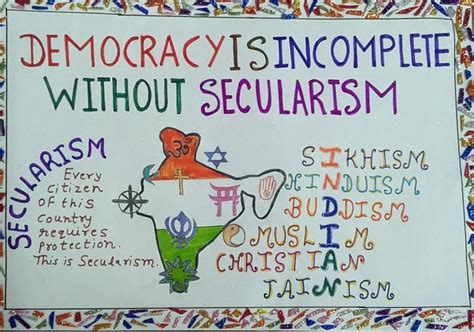 DEMOCRACY IS INCOMPLETE
WITHOUT SECULARISM
SECULARISM
Every
citizen
of this
country
requires
protection.
This is Secularism.
ॐ
SIKHISM
HINDUISM
BUDDISM
MUSLIM
CHRISTIAN
JAINISM